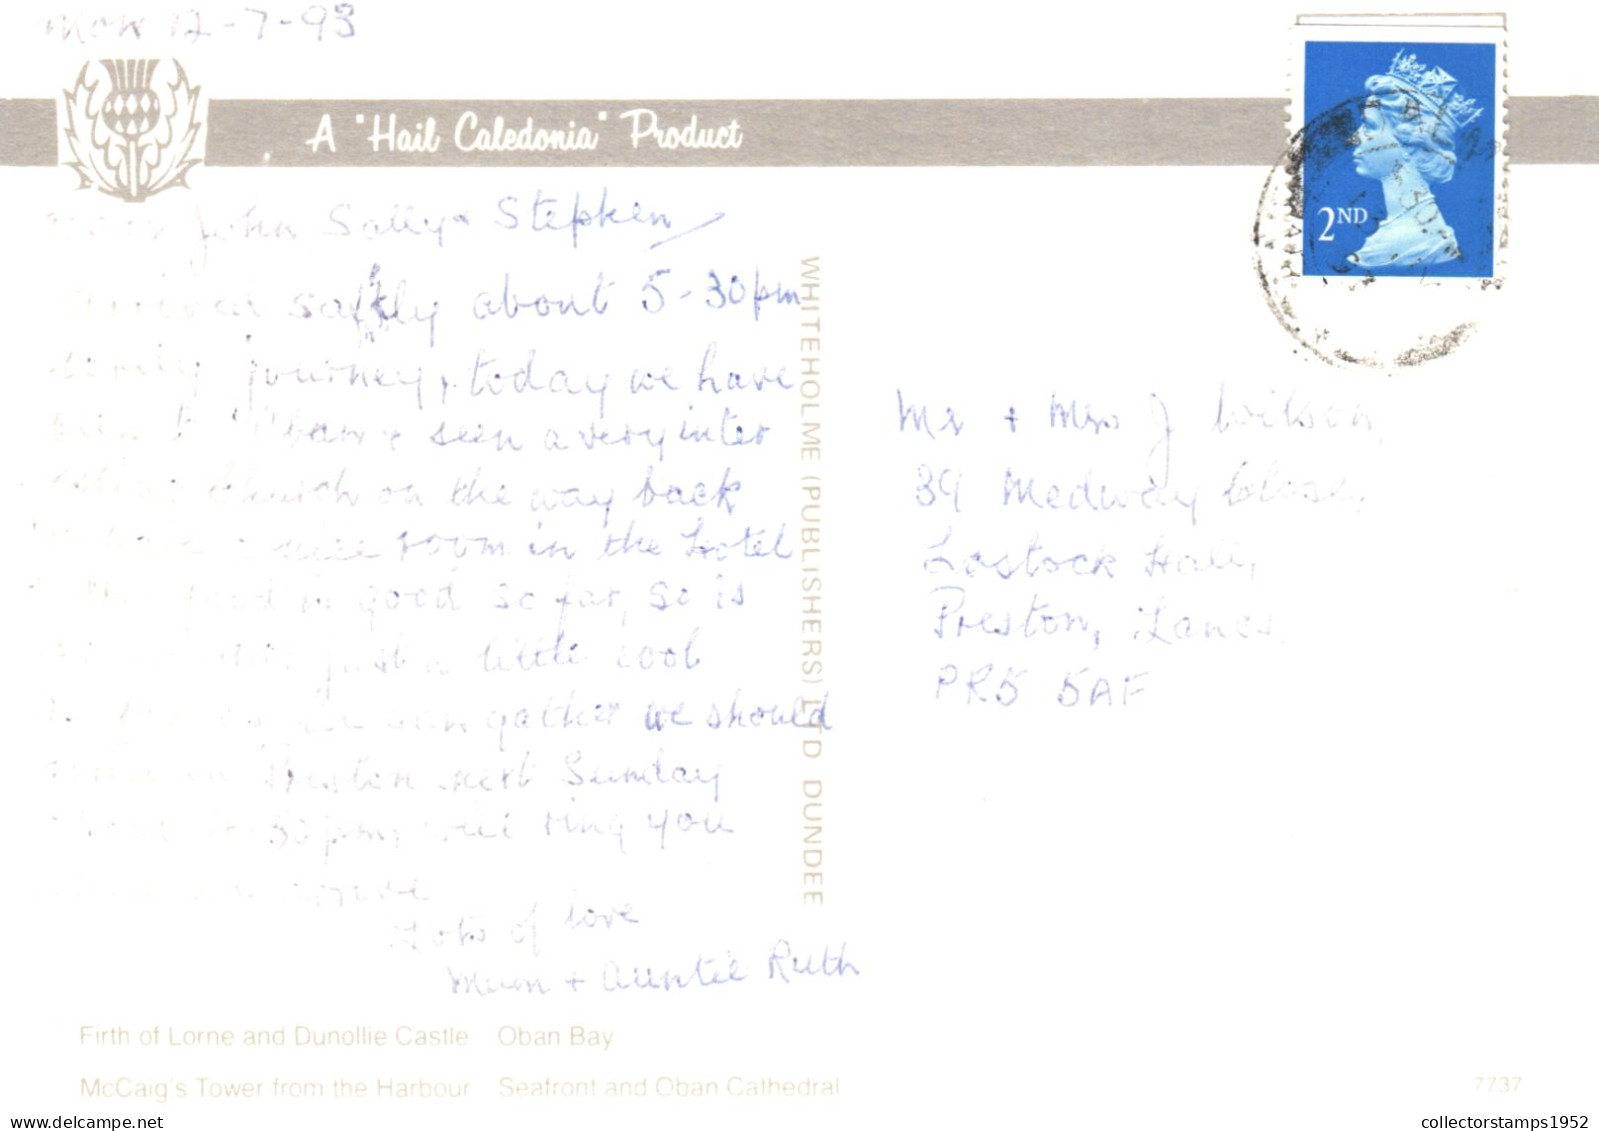 Mon 12-7-93
A "Hail Caledonia" Product
2ND
Dear John Sally + Stephen
Arrived safely about 5-30pm
lovely journey, today we have
been to Oban + seen a very inter
esting church on the way back
We have a nice room in the Hotel
+ the food is good so far, so is
just a little cool
we can gather we should
arrive in Preston next Sunday
about 30pm, will ring you
arrive
Lots of love
Mum + Auntie Ruth
WHITEHOLME (PUBLISHERS) LTD DUNDEE
Mr + Mrs J Wilson,
39 Medway Close,
Lostock Hall,
Preston, Lancs.
PR5 5AF
Firth of Lorne and Dunollie Castle Oban Bay
McCaig's Tower from the Harbour Seafront and Oban Cathedral
7737
collectorstamps1952